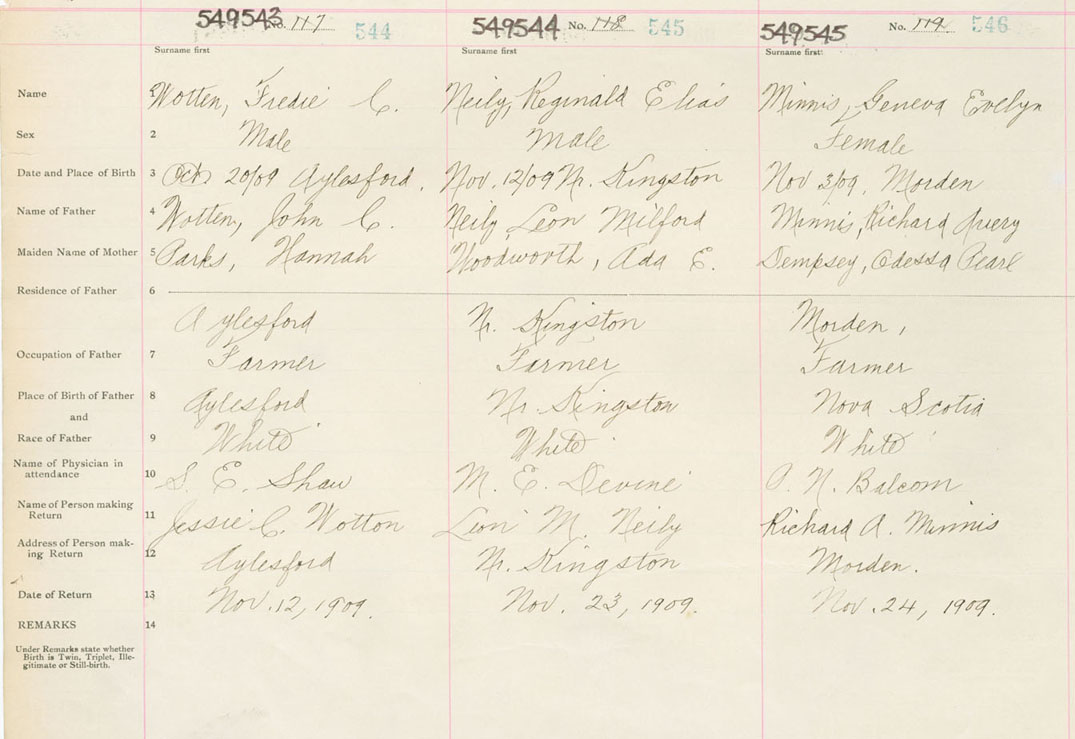 549543 No. 117 544 549544 No. 118 545 549545 No. 119 546
Surname first Surname first Surname first
Name 1 Wotten, Fredie C. Neily, Reginald Elias Minnis, Geneva Evelyn
Sex 2 Male Male Female
Date and Place of Birth 3 Oct 20/09 Aylesford. Nov. 12/09 Nr. Kingston Nov 3/09, Morden
Name of Father 4 Wotten, John C. Neily Leon Milford Minnis, Richard Avery
Maiden Name of Mother 5 Parks, Hannah Woodworth, Ada E. Dempsey, Odessa Pearl
Residence of Father 6
Aylesford Nr. Kingston Morden,
Occupation of Father 7 Farmer Farmer Farmer
Place of Birth of Father 8 Aylesford Nr. Kingston Nova Scotia
and
Race of Father 9 White White White
Name of Physician in
attendance 10 S. E. Shaw M. E. Devine N. Balcom
Name of Person making
Return 11 Jessie C. Wotton Leon M. Neily Richard A. Minnis
Address of Person mak-
ing Return 12 Aylesford Nr. Kingston Morden.
Date of Return 13 Nov. 12, 1909. Nov. 23, 1909. Nov. 24, 1909.
REMARKS 14
Under Remarks state whether
Birth is Twin, Triplet, Ille-
gitimate or Still-birth.